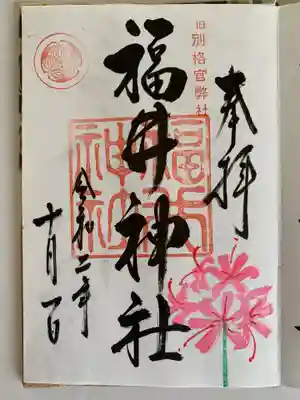 奉拝
旧別格官幣社
福井神社
福井神社
令和二年
十月一日